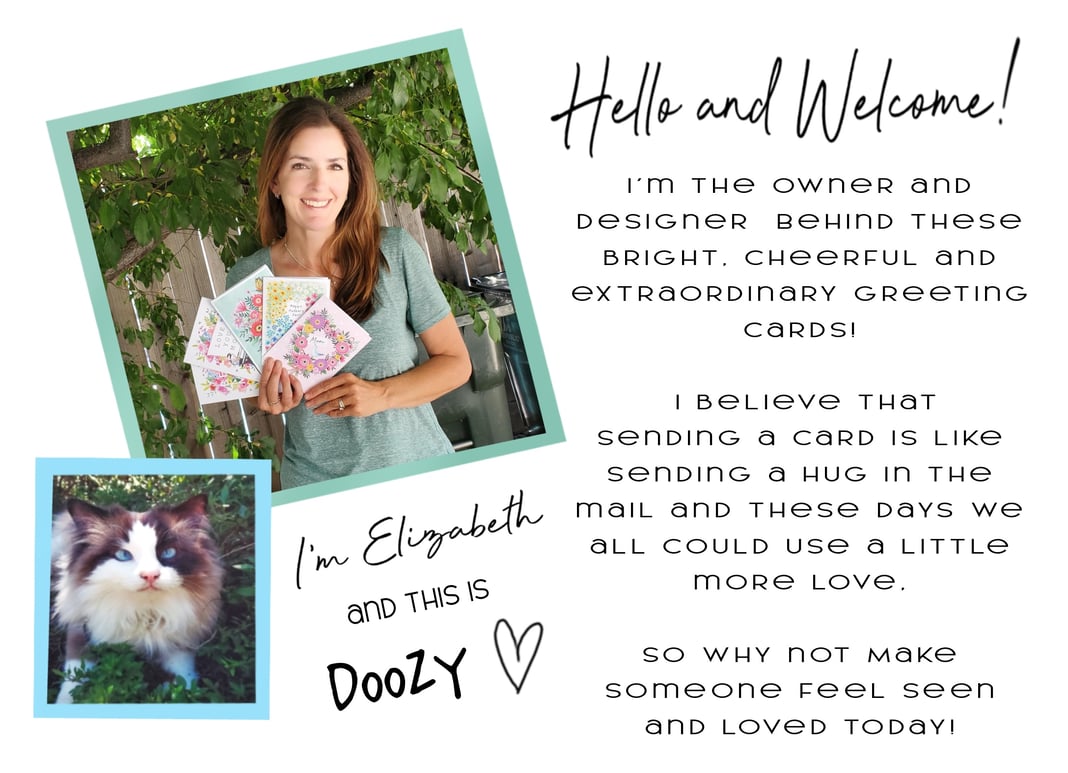 Hello and Welcome!
I'm THE OWNER AND
DESIGNER BEHIND THESE
BRIGHT, CHEERFUL AND
EXTRAORDINARY GREETING
CARDS!
I BELIEVE THAT
SENDING A CARD IS LIKE
SENDING A HUG IN THE
MAIL AND THESE DAYS WE
ALL COULD USE A LITTLE
MORE LOVE.
SO WHY NOT MAKE
SOMEONE FEEL SEEN
AND LOVED TODAY!
I'm Elizabeth
AND THIS IS
DOOZY